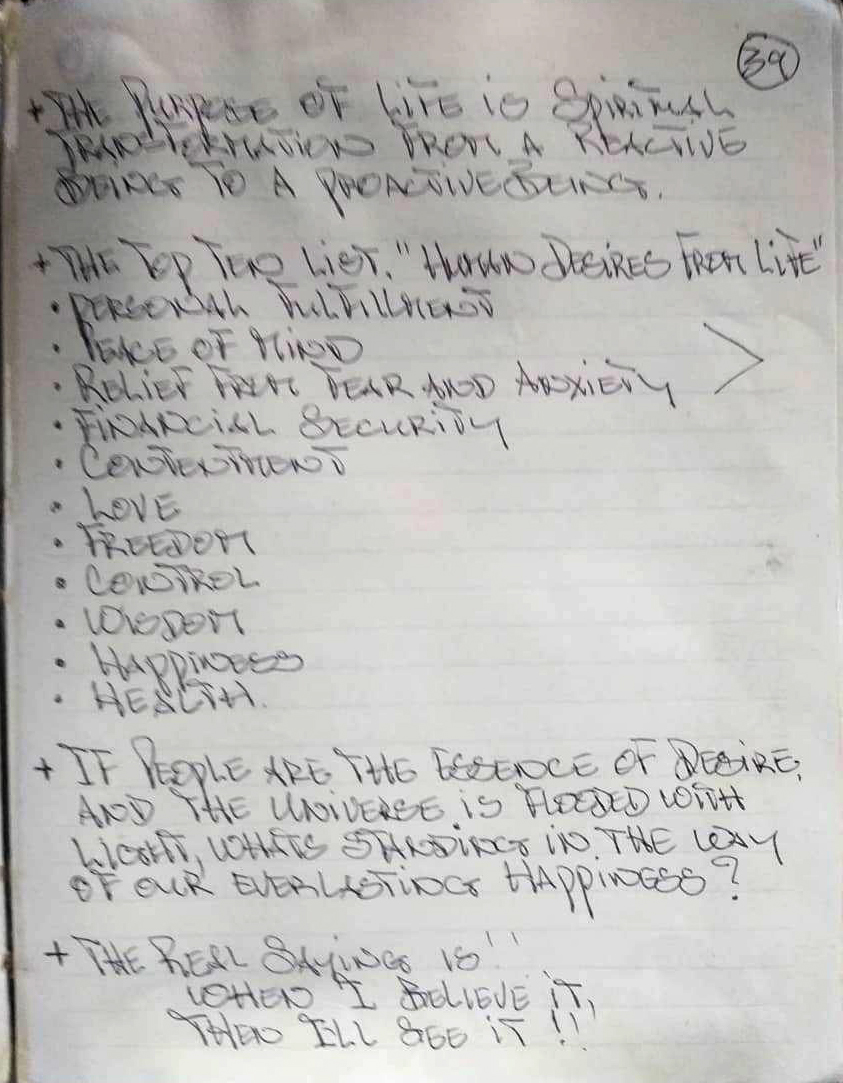 39
+ THE PURPOSE OF LIFE IS SPIRITUAL
TRANSFORMATION FROM A REACTIVE
BEING TO A PROACTIVE BEING.
+ THE TOP TEN LIST. "HUMAN DESIRES FROM LIFE"
• PERSONAL FULFILLMENT
• PEACE OF MIND
• RELIEF FROM FEAR AND ANXIETY >
• FINANCIAL SECURITY
• CONTENTMENT
• LOVE
• FREEDOM
• CONTROL
• WISDOM
• HAPPINESS
• HEALTH.
+ IF PEOPLE ARE THE ESSENCE OF DESIRE,
AND THE UNIVERSE IS FLOODED WITH
LIGHT, WHATS STANDING IN THE WAY
OF OUR EVERLASTING HAPPINESS?
+ THE REAL SAYING IS''
WHEN I BELIEVE IT,
THEN ILL SEE IT !!